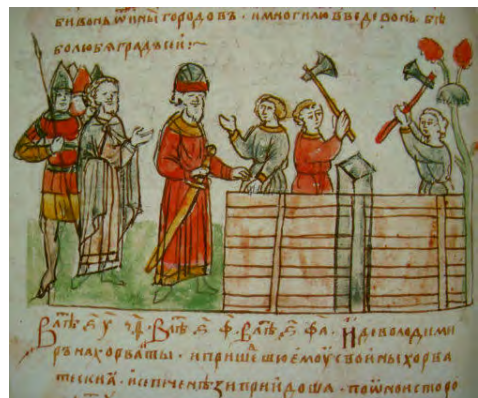 бивонь ѿ инꙑ городовъ · и многи люⷣ въведевонь · бѣ
бо любѧ градъ сии :~
В лѣⷮ · ҂ѕ · у · чѳ · В лѣⷮ · ҂ѕ · ф · В лѣⷮ · ҂ѕ · фа · Иде володими
ръ на хорваты · и пришеⷣшю емоу с воинꙑ хорва
тьскиꙗ · и се печенѣзи приидоша · по ѿ нои сторо